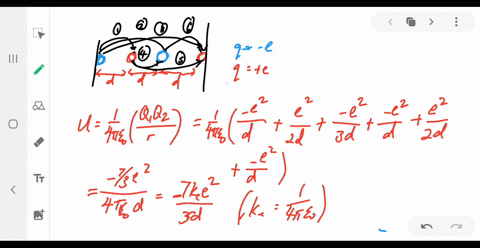 ① ② ③ ⑥
④ ⑤
q = -e
q = +e
d d d
U = 1/4πε₀ (Q₁Q₂/r) = 1/4πε₀ (-e²/d + e²/2d + -e²/3d + -e²/d + e²/2d
+ -e²/d)
= -7/3e²/4πε₀d = -7kₑe²/3d (kₑ = 1/4πε₀)
Tт